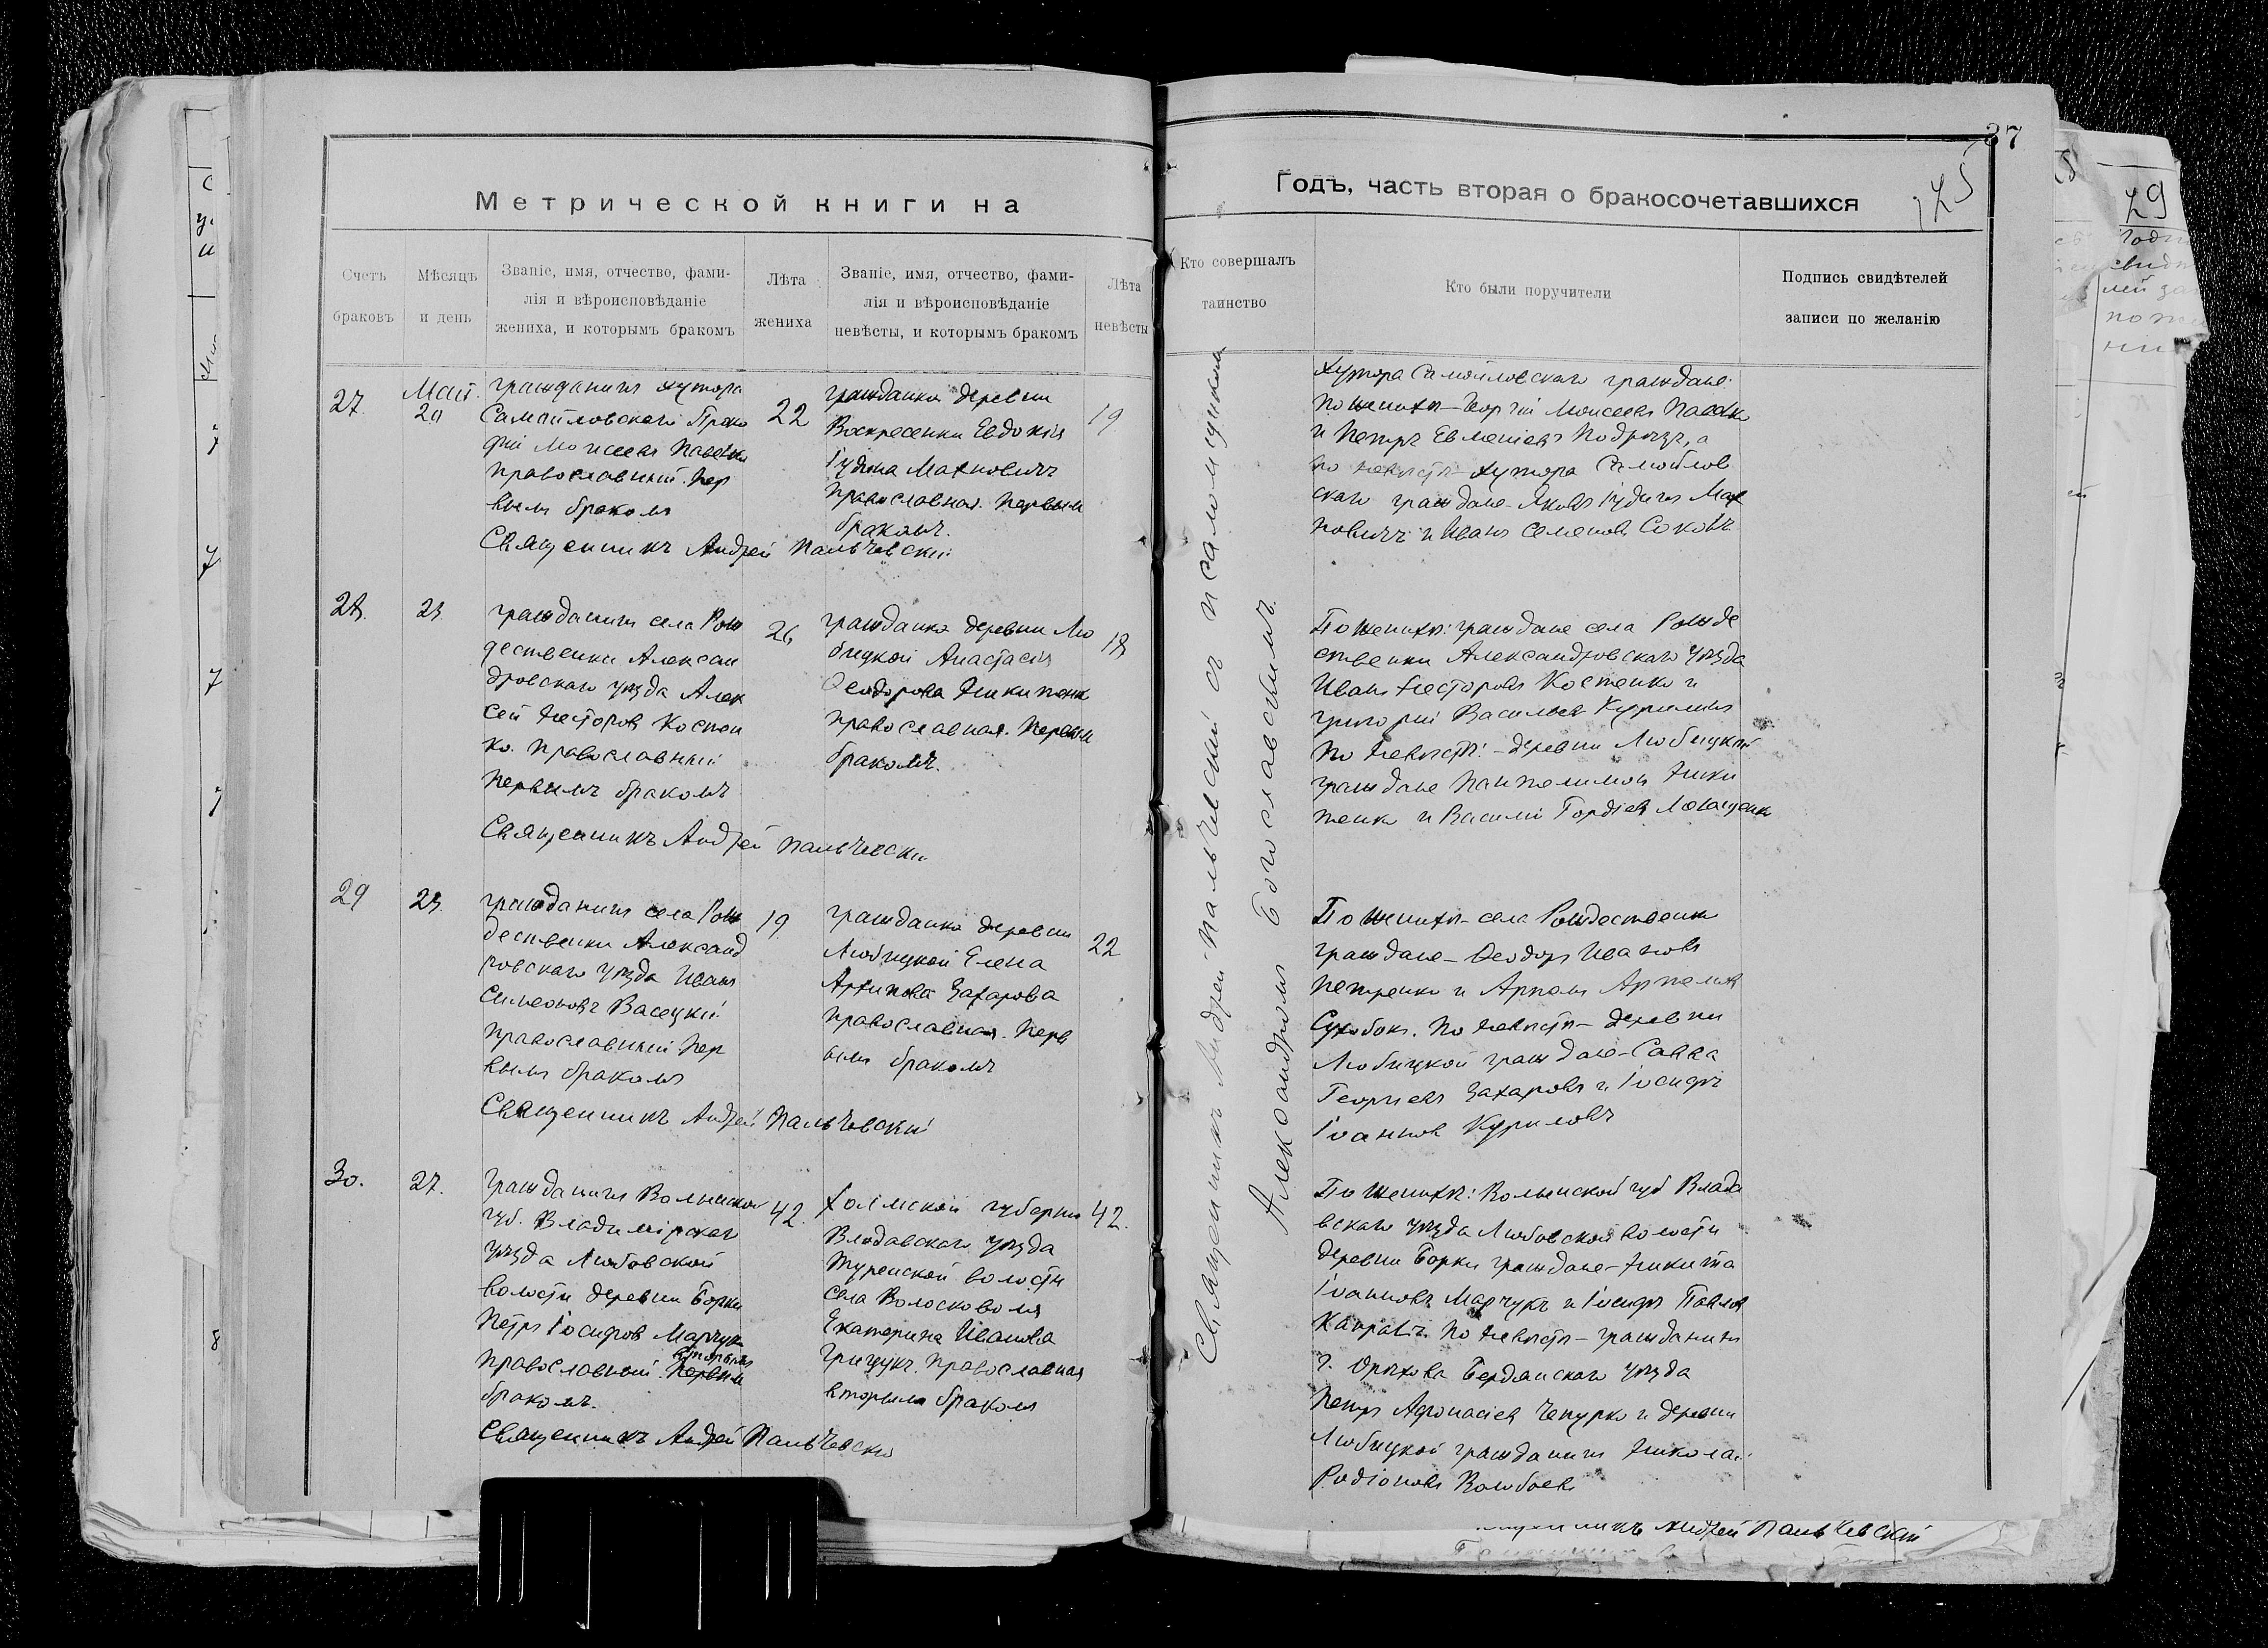 37
125
Метрической книги на
Годъ, часть вторая о бракосочетавшихся
Счетъ
браковъ
Мѣсяцъ
и день
Званіе, имя, отчество, фами-
лія и вѣроисповѣданіе
жениха, и которымъ бракомъ
Лѣта
жениха
Званіе, имя, отчество, фами-
лія и вѣроисповѣданіе
невѣсты, и которымъ бракомъ
Лѣта
невѣсты
Кто совершалъ
таинство
Кто были поручители
Подпись свидѣтелей
записи по желанію
27.
Май.
20
гражданинъ хутора
Самойловскаго Проко
фій Моисеевъ
православный. Пер
вымъ бракомъ
22
гражданка деревни
Воскресенки Евдокія
Іудина Махновичъ
православная. Первым
бракомъ.
19
Священникъ Андрей Пальчевскій
Хутора Самойловскаго граждане:
по женихѣ – Георгій Моисеевъ
и Петръ Евменіевъ Подрѣзъ, а
по невѣстѣ – хутора Самойлов
скаго граждане – Яковъ Іудинъ Мах
новичъ и Иванъ Семеновъ
28.
23.
гражданинъ села Рож
дественки Алексан
дровскаго уѣзда Алек
сей Несторовъ Костен
ко. Православный
первымъ бракомъ
26
гражданка деревни Лю
бицкой Анастасія
Ѳеодорова Никитенк
православная. Первым
бракомъ.
18
Священникъ Андрей Пальчевскій
По женихѣ: граждане села Рожде
ственки Александровскаго уѣзда
Иванъ Несторовъ Костенко и
Григорій Васильевъ
по невѣстѣ: – деревни Любицкой
граждане Пантелимонъ Ники
тенко и Василій Гордіевъ
29
23.
гражданинъ села Рож
дественки Александ
ровскаго уѣзда Иванъ
Симеоновъ Васецкій
православный пер
вымъ бракомъ
19.
гражданка деревни
Любицкой Елена
Архипова Захарова
православная. Перв
ымъ бракомъ
22
Священникъ Андрей Пальчевскій
По женихѣ – села Рождественки
граждане – Ѳеодоръ Ивановъ
Петренко и Артемъ Артемовъ
Сухобокъ. По невѣстѣ – деревни
Любицкой граждане – Савва
Георгіевъ Захаровъ и Іосифъ
Іоанновъ Куриловъ
30.
27.
Гражданинъ Волынской
губ. Владимірскаго
уѣзда Любовской
волости деревни Борки
Петръ Іосифовъ Марчукъ
вторымъ
православный. Первым
бракомъ.
42.
Холмской губерніи
Влодавскаго уѣзда
Турейской волости
села Волосковоля
Екатерина Иванова
Грицукъ. Православная
вторымъ бракомъ
42.
Священникъ Андрей Пальчевскій
По женихѣ: Волынской губ Влади
вскаго уѣзда Любовской волости
деревни Борки граждане – Никита
Іоанновъ Марчукъ и Іосифъ Павлов
По невѣстѣ – гражданинъ
г. Орѣхова Бердянскаго уѣзда
Петръ Афонасіевъ Чепурко и деревни
Любицкой гражданинъ Николай
Родіоновъ
Священникъ Андрей Пальчевскій съ псаломщикомъ
Александромъ Богославскимъ.
29
Андрей Пальчевскій